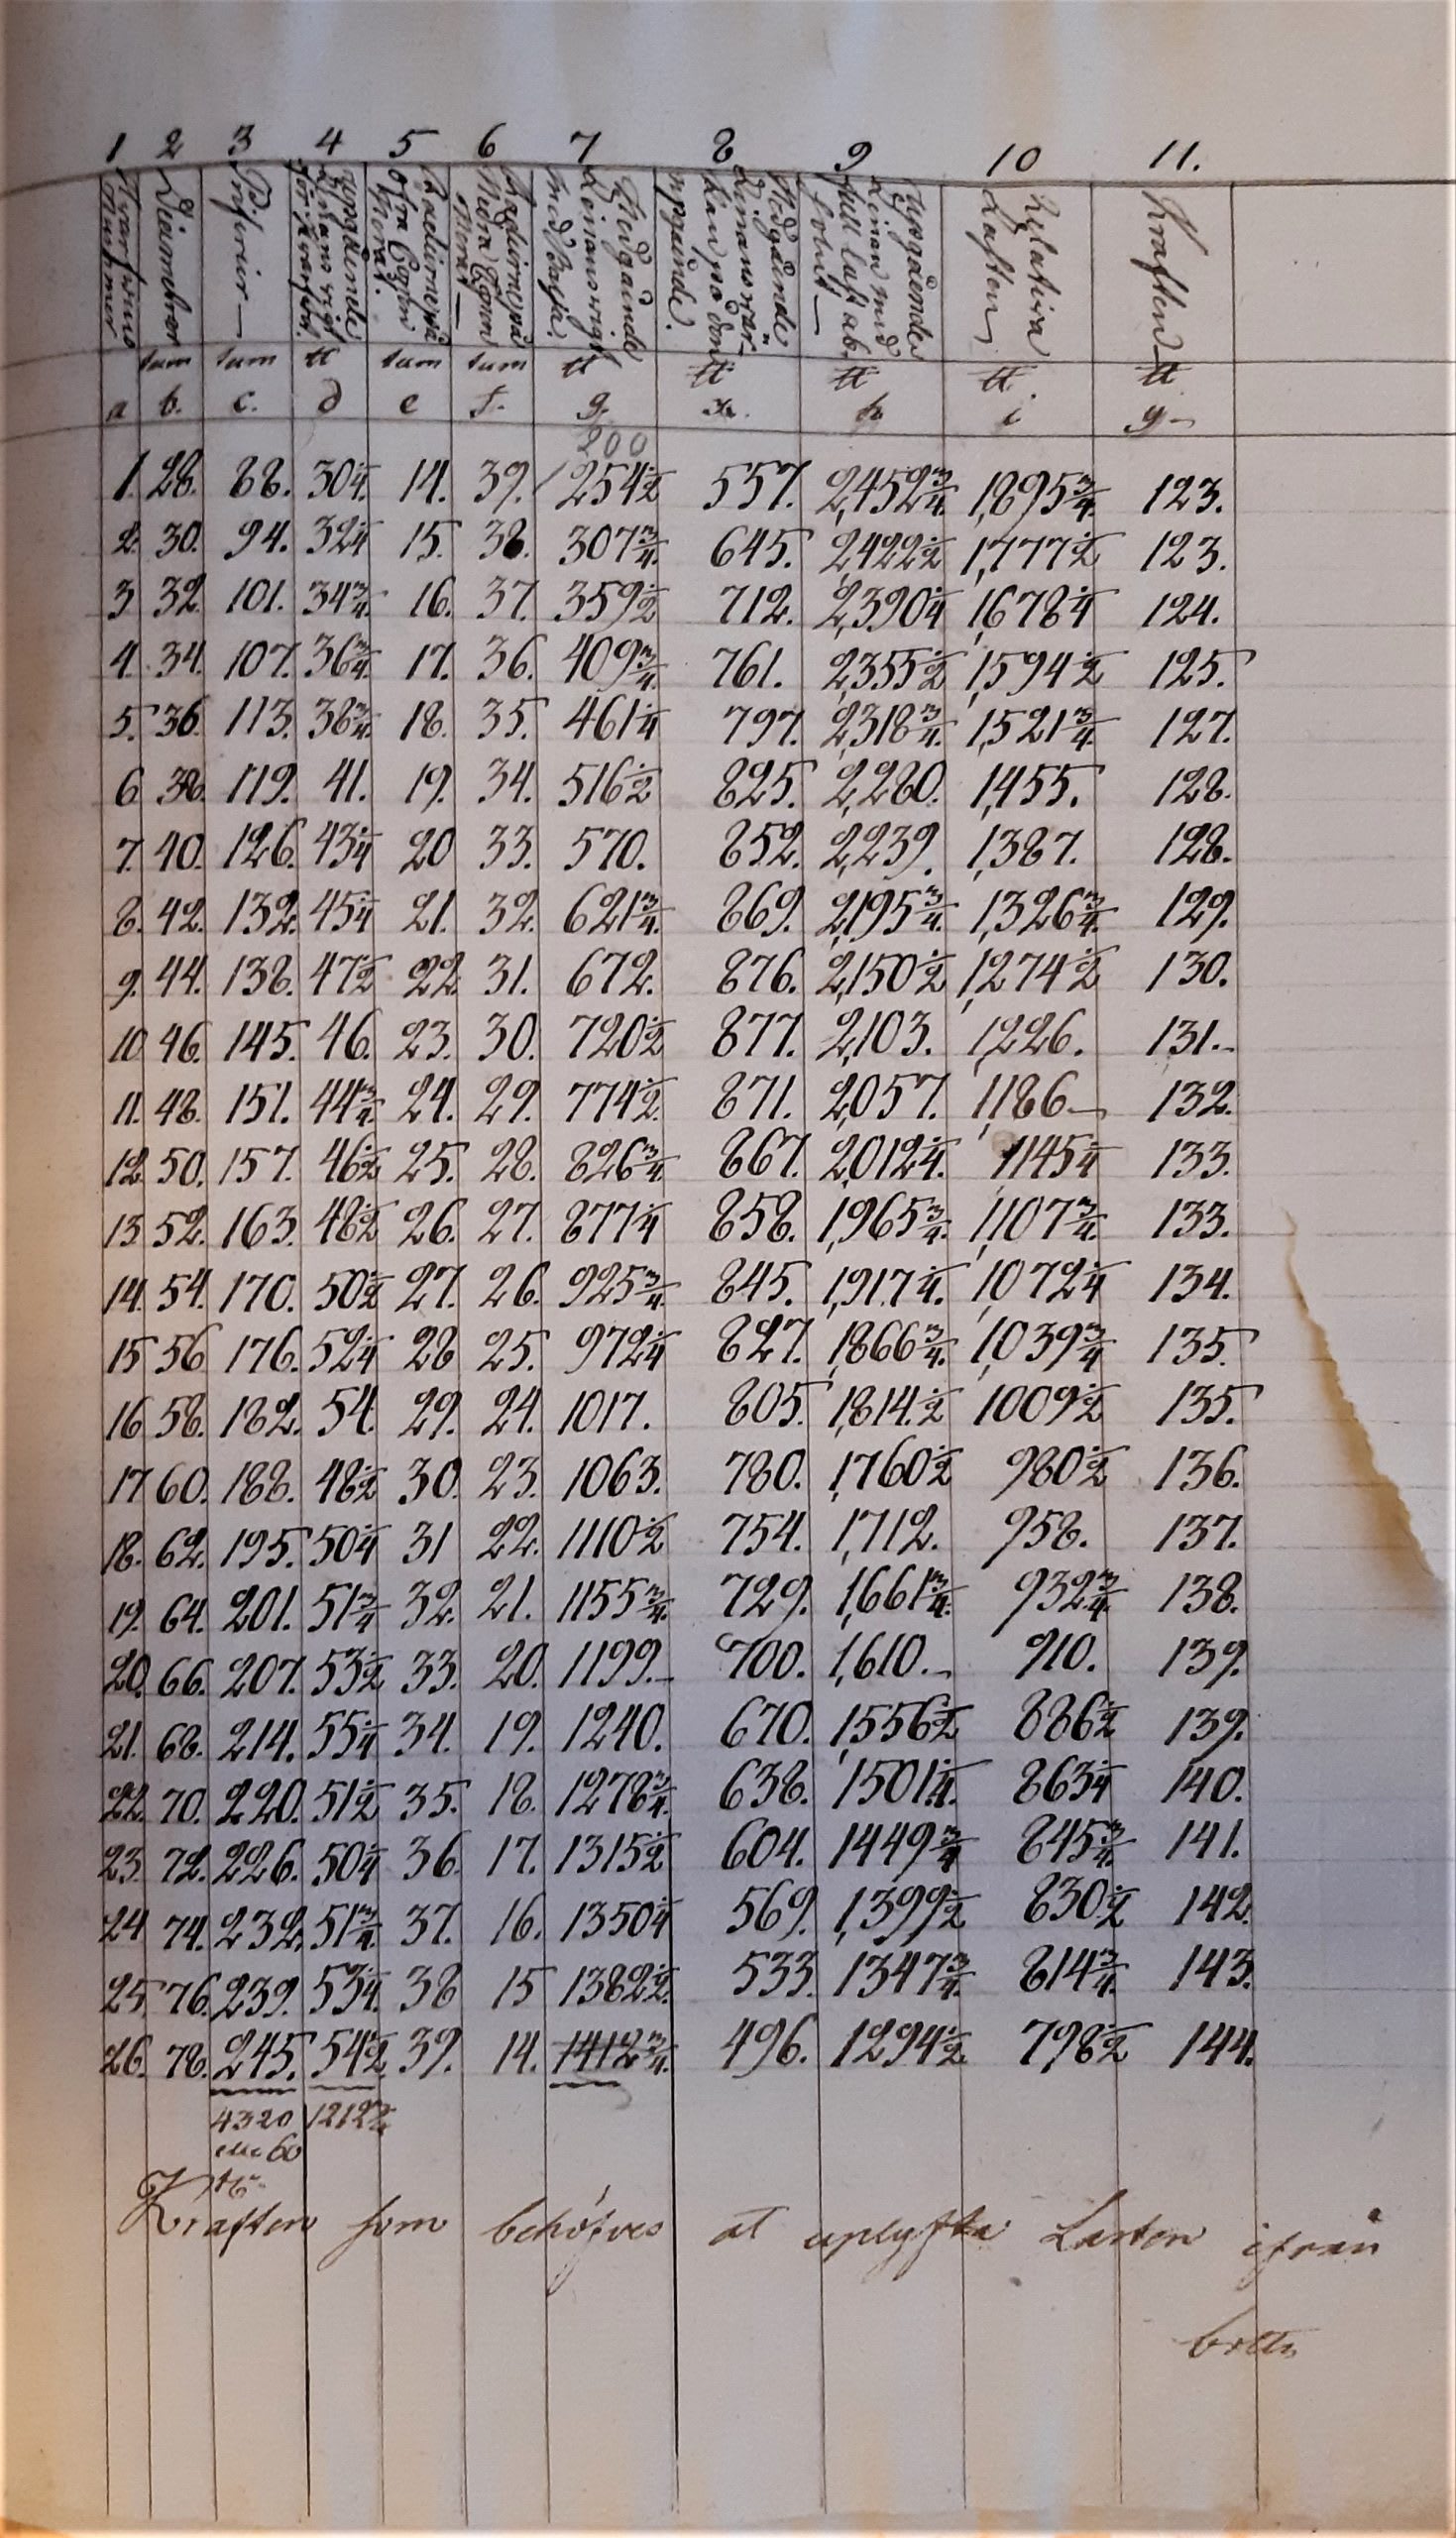 1 2 3 4 5 6 7 8 9 10 11.
Diametrer
Relativa Lasten
Kraften
tum tum ℔ tum tum ℔ ℔ ℔ ℔ ℔
a b. c. d e f. g. h i
200
1. 28. 88. 30 1/4. 14. 39. 1254 1/2 557. 2,452 3/4. 1,895 3/4. 123.
2. 30. 94. 32 1/4 15. 38. 307 3/4. 645. 2,422 1/2 1,777 1/2 123.
3 32. 101. 34 3/4. 16. 37. 359 1/2 712. 2,390 1/4 1,678 1/4 124.
4. 34. 107. 36 3/4. 17. 36. 409 3/4. 761. 2,355 1/2 1,594 1/2 125.
5. 36. 113. 38 3/4. 18. 35. 461 1/4 797. 2,318 3/4. 1,521 3/4. 127.
6 38. 119. 41. 19. 34. 516 1/2 825. 2,280. 1,455. 128.
7. 40. 126. 43 1/4 20 33. 570. 852. 2,239. 1,387. 128.
8. 42. 132. 45 1/4 21. 32. 621 3/4. 869. 2,195 3/4. 1,326 3/4. 129.
9. 44. 138. 47 1/2 22 31. 672. 876. 2,150 1/2 1,274 1/2 130.
10. 46. 145. 46. 23. 30. 720 1/2 877. 2,103. 1,226. 131.
11. 48. 151. 44 3/4. 24. 29. 774 1/2. 871. 2,057. 1,186 132.
12. 50. 157. 46 1/2 25. 28. 826 3/4. 867. 2,012 1/4. 1145 1/4 133.
13 52. 163. 48 1/2 26. 27. 877 1/4 858. 1,965 3/4. 1,107 3/4. 133.
14. 54. 170. 50 1/2 27. 26. 925 3/4. 845. 1,917 1/4. 1,072 1/4 134.
15 56 176. 52 1/4 28 25. 972 1/4 827. 1,866 3/4. 1,039 3/4 135.
16 58. 182. 54. 29. 24. 1017. 805. 1,814 1/2 1009 1/2 135.
17 60. 188. 48 1/2 30. 23. 1063. 780. 1,760 1/2 980 1/2 136.
18. 62. 195. 50 1/4 31 22. 1110 1/2 754. 1,712. 958. 137.
19. 64. 201. 51 3/4 32. 21. 1155 3/4. 729. 1,661 3/4. 932 3/4. 138.
20. 66. 207. 53 1/2 33. 20. 1199. 700. 1,610. 910. 139.
21. 68. 214. 55 1/4 34. 19. 1240. 670. 1,556 1/2 886 1/2 139.
22. 70. 220. 51 1/2 35. 18. 1278 3/4. 638. 1501 1/4. 863 1/4 140.
23. 72. 226. 50 1/4 36. 17. 1315 1/2 604. 1449 3/4 845 3/4. 141.
24 74. 232. 51 3/4. 37. 16. 1350 1/4 569. 1,399 1/2 830 1/2 142.
25. 76. 239. 53 1/4. 38 15 1382 1/2. 533. 1347 3/4. 814 3/4. 143.
26. 78. 245. 54 1/2 39. 14. 1412 3/4. 496. 1294 1/2. 798 1/2 144.
4320
60
Kraften som behöfves at uplyfta Lasten ifrån
botten